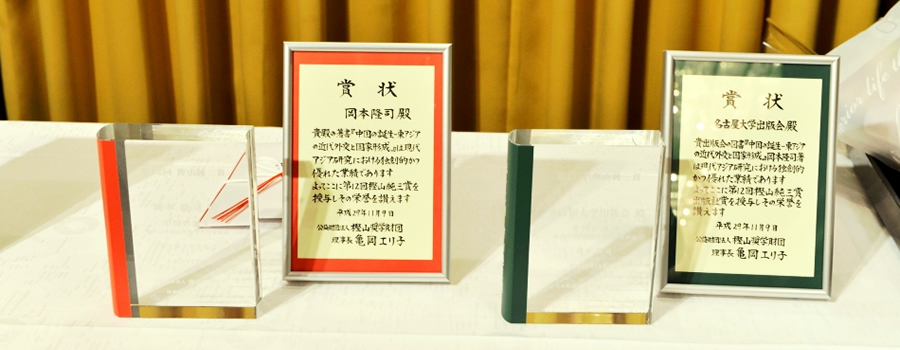 賞 状
岡本隆司 殿
貴殿の著書『中国の誕生-東アジア
の近代外交と国家形成』は現代
アジア研究における独創的かつ
優れた業績であります
よってここに第12回樫山純三賞を
授与しその栄誉を讃えます
平成29年11月9日
公益財団法人 樫山奨学財団
理事長 亀岡エリ子
賞 状
名古屋大学出版会 殿
貴出版会の図書『中国の誕生-東アジ
アの近代外交と国家形成』岡本隆司著
は現代アジア研究における独創的
かつ優れた業績であります
よってここに第12回樫山純三賞
出版社賞を授与しその栄誉を
讃えます
平成29年11月9日
公益財団法人 樫山奨学財団
理事長 亀岡エリ子
life